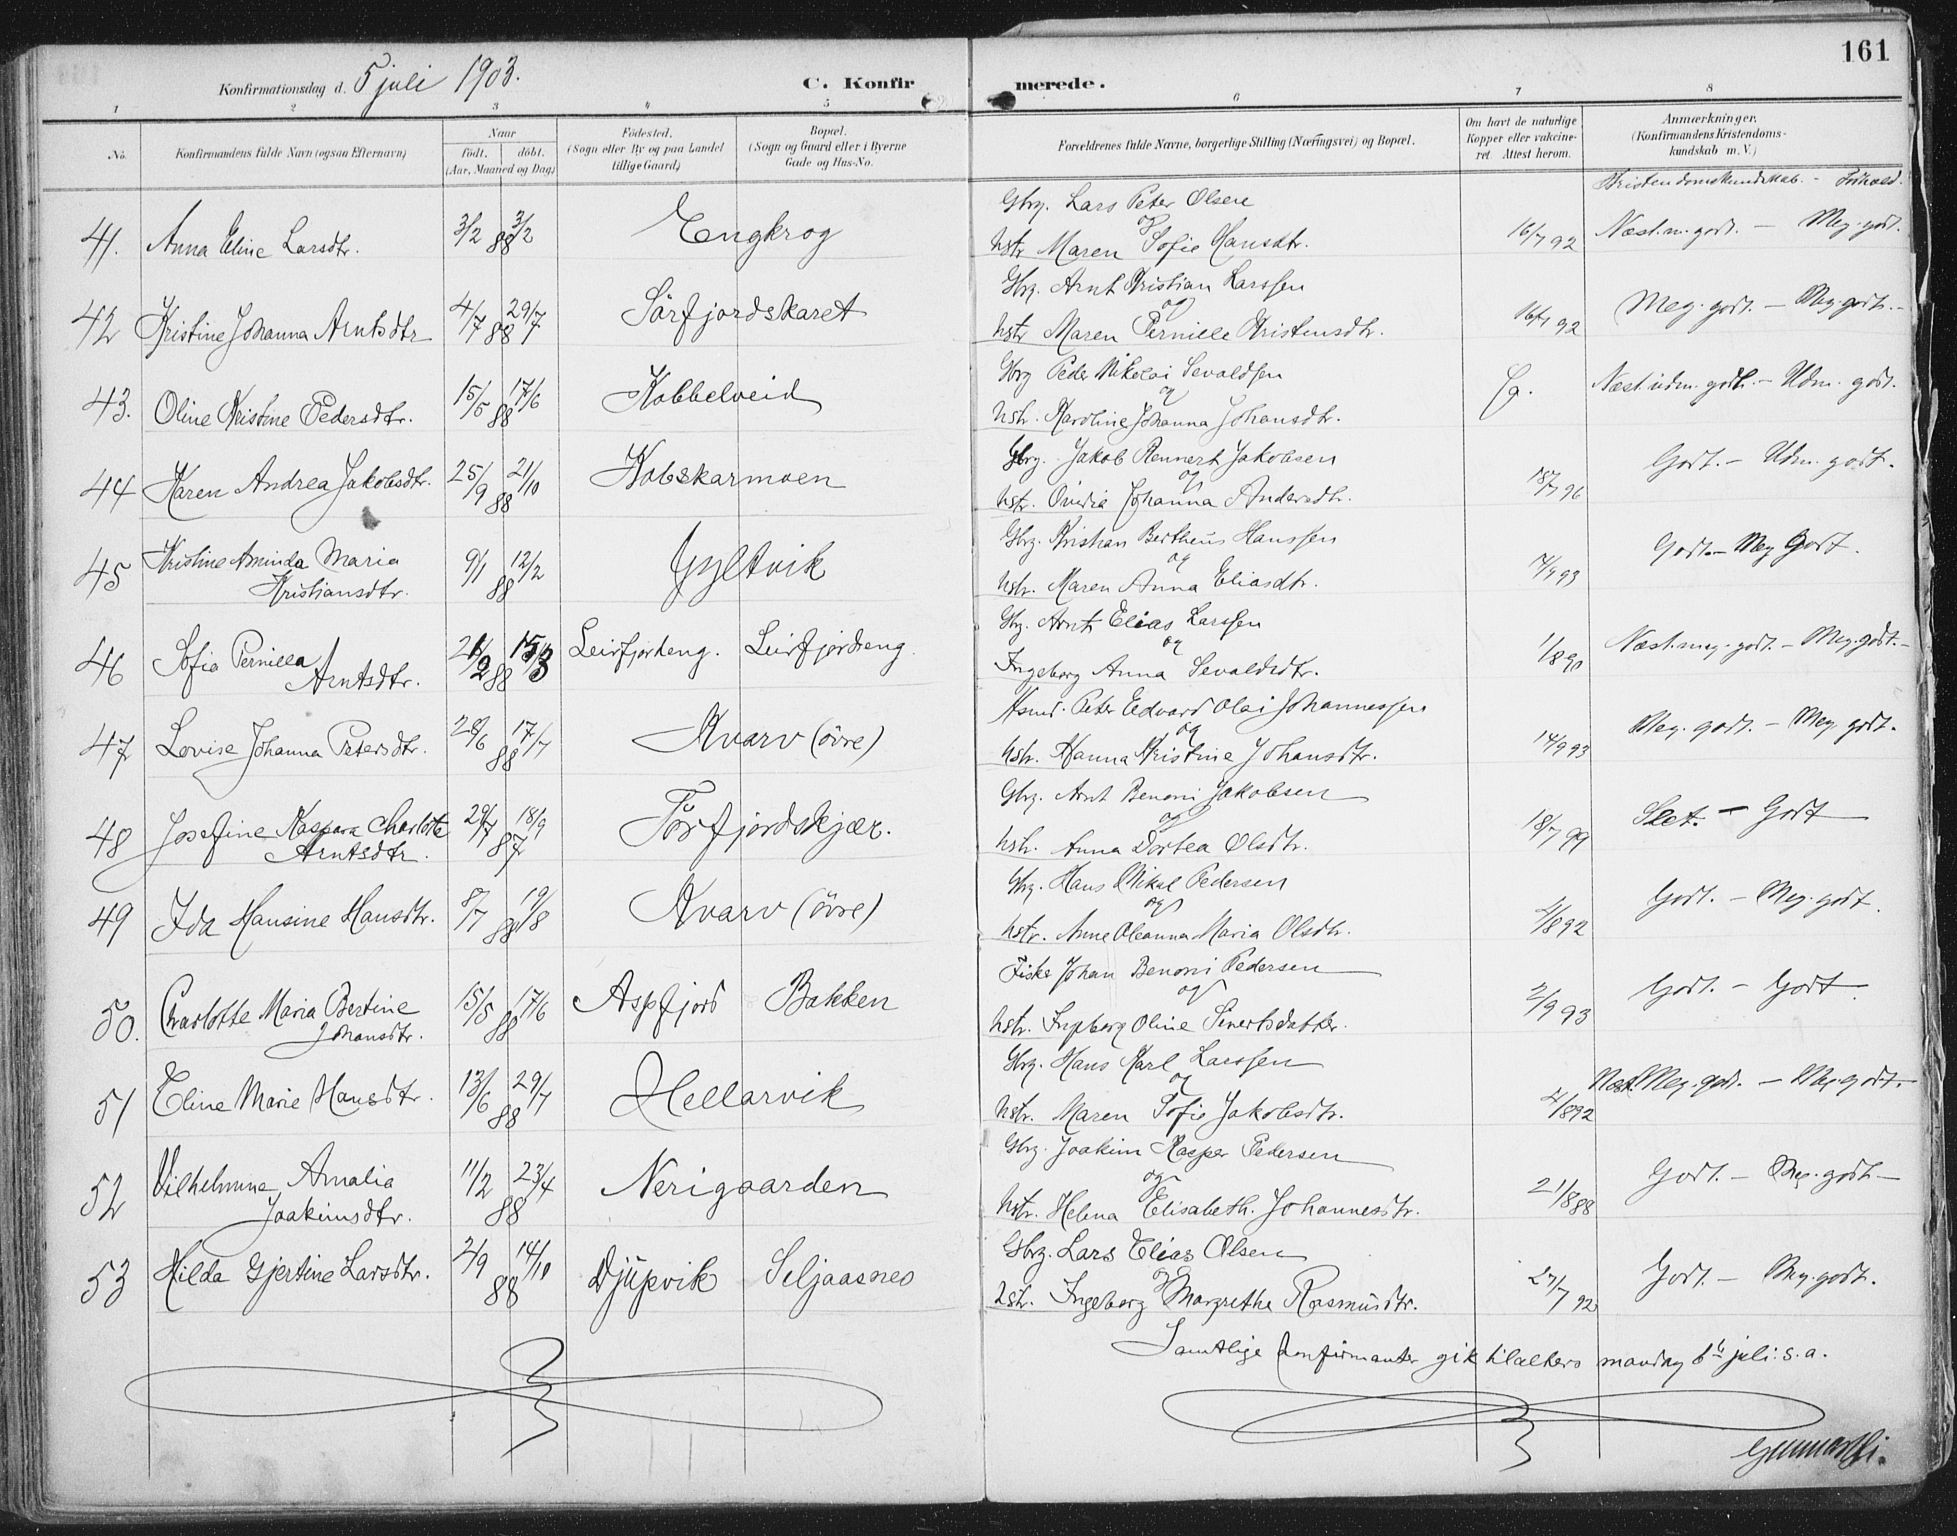 161
Konfirmationsdag d. 5 juli 1903. C. Konfirmerede.
1 2 3 4 5 6 7 8
No.
Konfirmandens fulde Navn (ogsaa Efternavn)
Naar
født. døbt.
(Aar, Maaned og Dag)
Fødested.
(Sogn eller By og paa Landet
tillige Gaard)
Bopæl.
(Sogn og Gaard eller i Byerne
Gade og Hus-No.
Forældrenes fulde Navne, borgerlige Stilling (Næringsvei) og Bopæl.
Om havt de naturlige
Kopper eller vaccine-
ret. Attest herom.
Anmærkninger.
(Konfirmandens Kristendoms-
kundskab m. V.)
Kristendomskundskab. - Forhold.
Gbrg. Lars Peter Olsen
og
41. Anna Eline Larsdtr. 3/2 88 3/2 Engkrog hstr Maren Sofie Hansdtr. 16/7 92 Næst.m.godt. - Meg. godt.
Gbrg. Arnt Kristian Larssen
og
42 Kristine Johanna Arntsdtr 4/7 88 29/7 Sörfjordskaret hstr Maren Pernille Kristensdtr. 16/7 92 Meg. godt. - Meg. godt.
Gbrg Peder Nikolai Sevaldsen
og
43. Oline Kristine Pedersdtr. 15/5 88 17/6 Kobbelveid hstr. Karoline Johanna Johansdtr. Næst. udm. godt. - Udm. godt.
Gbrg. Jakob Rennert Jakobsen
og
44 Karen Andrea Jakobsdtr. 25/9 88 21/10 Kobskarmoen hstr. Ovidia Johanna Andersdtr. 18/7 96 Godt. - Udm. godt.
Gbrg. Kristian Bertheus Hanssen
og
45 Kristine Aminda Maria
Kristiansdtr. 9/1 88 12/2 Gyltvik hstr. Maren Anna Eliasdtr. Godt. - Meg Godt.
Gbrg. Arnt Elias Larssen
og
46 Sofie Pernilla
Arntsdtr. 88 Leirfjordeng. Leirfjordeng. Ingeborg Anna Sevaldsdtr. 1/8 90 Næst. meg. godt. - Meg. godt. -
Peter Edvard Olai Johannessen
og
47 Lovise Johanna Petersdtr. 28/6 88 17/7 Kvarv (övre) hstr. Hanna Kristine Johansdtr. 14/9 93 Meg. godt. - Meg. godt.
Gbrg. Arnt Benoni Jakobsen
og
48 Josefine Kaspara Charlotte
Arntsdtr. 29/7 87 18/9 Törfjordskjær. hstr. Anna Dortea Olsdtr. 18/7 99 Slet. - Godt
Gbrg. Hans Mikal Pedersen
og
49 Ida Hansine Hansdtr. 8/7 88 19/8 Kvarv (övre) hstr. Anne Oleanna Maria Olsdtr. 2/8 92 Godt. - Meg. godt.
Fisker Johan Benoni Pedersen
og
50. Charlotte Maria Bertine
Johansdtr. 15/5 88 17/6 Aspfjord Bakken hstr. Ingeborg Oline Sivertsdatter. 2/9 93 Godt. - Godt.
Gbrg. Hans Karl Larssen
og
51 Eline Marie Hansdtr. 13/6 88 29/7 Hellarvik hstr. Maren Sofie Jakobsdtr. 4/8 92 Næst. Meg. godt. - Meg. godt. -
Gbrg. Joakim Kasper Pedersen
og
52 Vilhelmine Amalia
Joakimsdtr. 11/2 88 23/4 Nerigaarden hstr. Helena Elisabeth. Johannesdtr. 21/8 88 Godt. - Meg. godt. -
Gbrg. Lars Elias Olsen
og
53 Hilda Gjertine Larsdtr. 2/9 88 14/10 Djüpvik Seljaasnes hstr. Ingeborg Margrethe Rasmüsdtr. 27/7 92 Godt. - Meg. godt.
Samtlige konfirmanter gik tilalters mandag 6te juli. s. a.